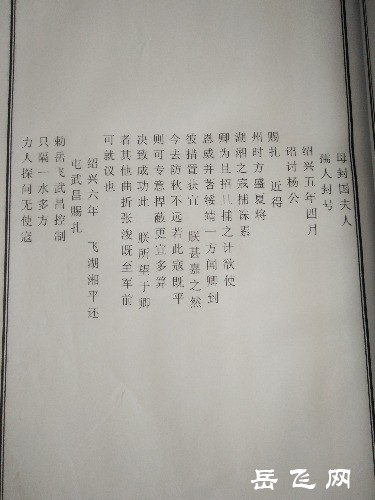 母封国夫人
孺人封号
绍兴五年四月
诏讨杨么
赐扎 近得
州时方盛夏将
湖湘之寇捕诛素
卿为且招且捕之计欲使
恩威并著绥靖一方闻卿到
彼措置获宜 朕甚嘉之然
今去防秋不远若此寇既平
则可专意捍蔽更宜多算
决致成功此 朕所望于卿
者其他曲折张浚既至军前
可就议也
绍兴六年 飞湖湘平还
屯武昌赐扎
勅岳飞武昌控制
只隔一水多方
力人探问无使寇
岳飞网